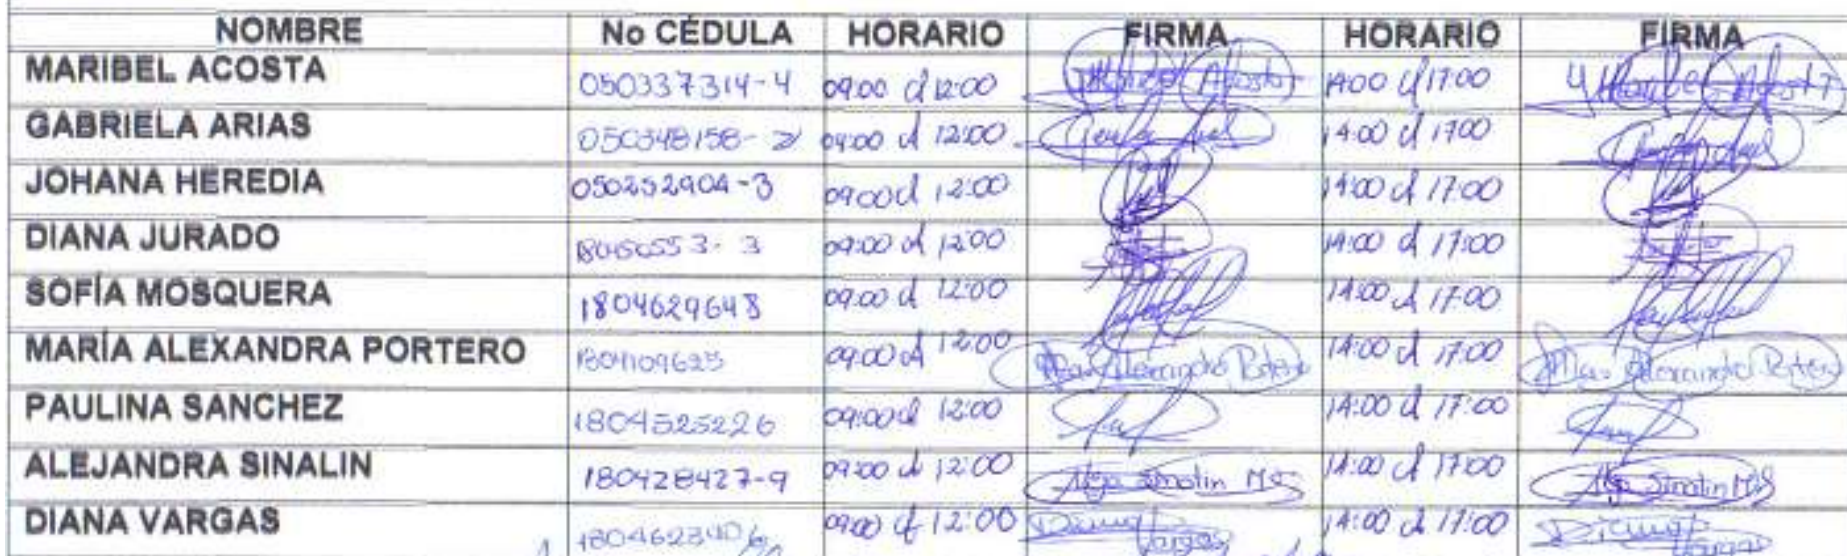 NOMBRE No CÉDULA HORARIO FIRMA HORARIO FIRMA
MARIBEL ACOSTA 050337314-4 09:00 a 12:00 Maribel Acosta 14:00 a 17:00 Maribel Acosta
GABRIELA ARIAS 050348158-2 09:00 a 12:00 14:00 a 17:00
JOHANA HEREDIA 050252904-3 09:00 a 12:00 14:00 a 17:00
DIANA JURADO 09:00 a 12:00 14:00 a 17:00
SOFÍA MOSQUERA 1804629648 09:00 a 12:00 14:00 a 17:00
MARÍA ALEXANDRA PORTERO 09:00 a 12:00 Ma. Alexandra Portero 14:00 a 17:00 Ma. Alexandra Portero
PAULINA SANCHEZ 1804525226 09:00 a 12:00 14:00 a 17:00
ALEJANDRA SINALIN 180428427-9 09:00 a 12:00 Sinalin 14:00 a 17:00 Sinalin
DIANA VARGAS 09:00 a 12:00 Diana Vargas 14:00 a 17:00 Diana Vargas